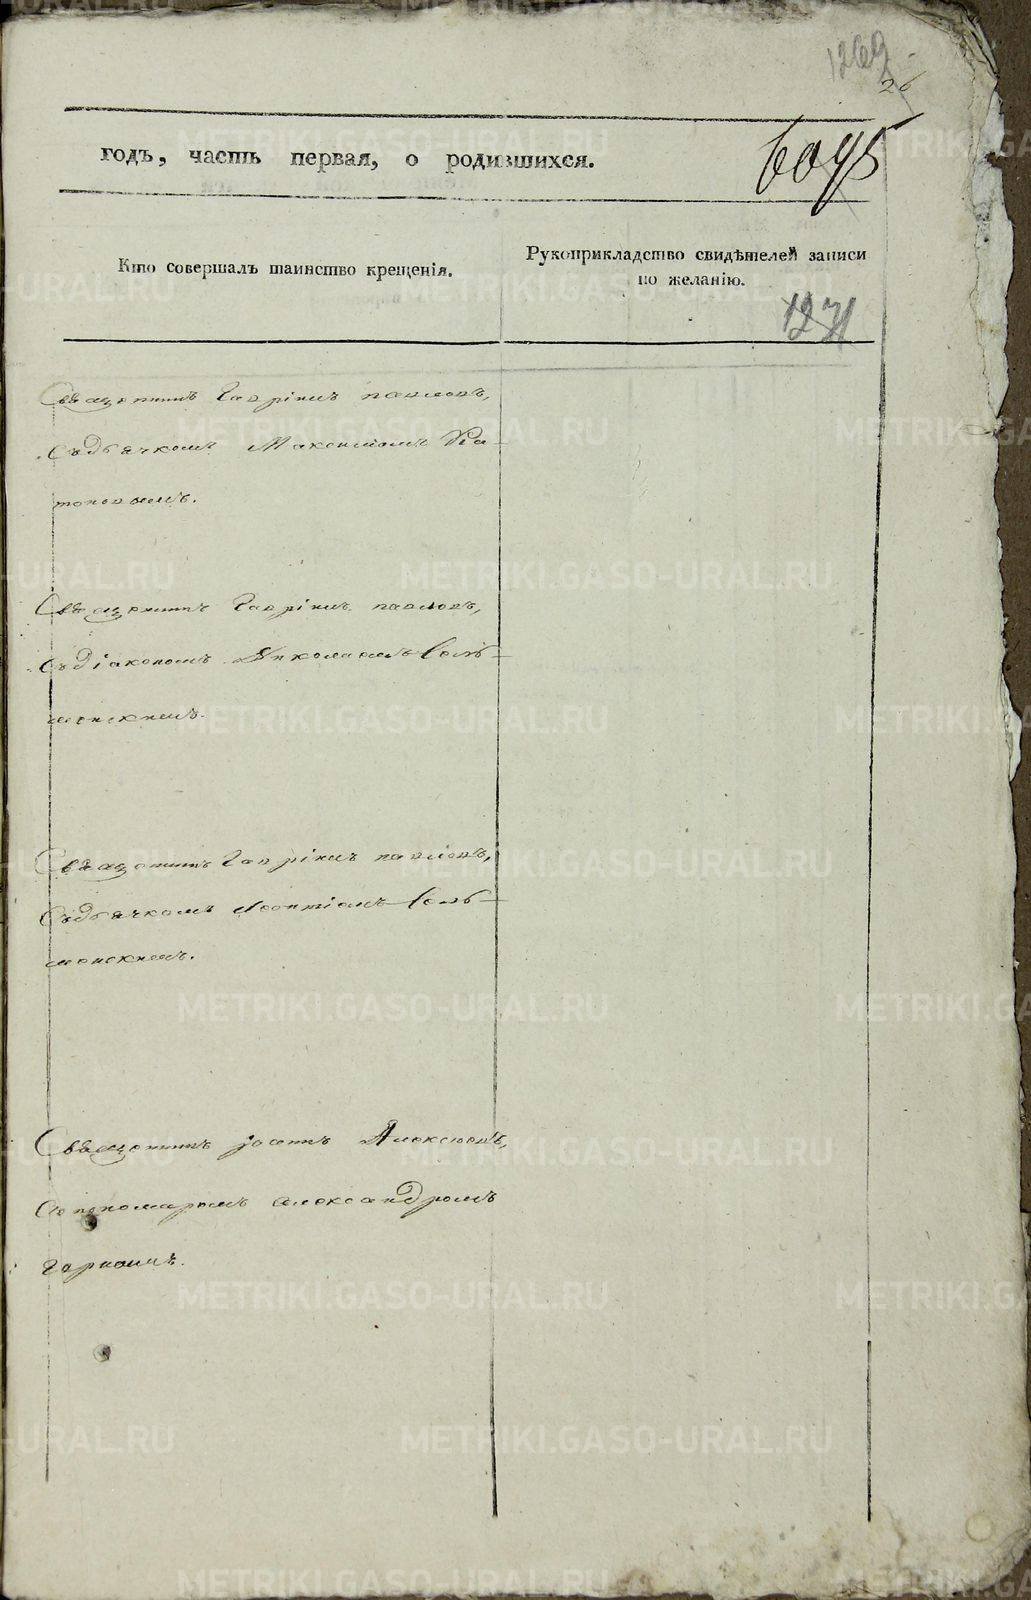 1269
26
годъ, часть первая, о родившихся.
6095
Кто совершалъ таинство крещенія.
Рукоприкладство свидѣтелей записи
по желанію.
1271
Священникъ Гавріилъ Павловъ,
съ дьячкомъ Максимомъ Пла-
тоновымъ.
Священникъ Гавріилъ Павловъ,
съ діакономъ Николаемъ
Священникъ Гавріилъ Павловъ,
съ дьячкомъ Леонтіемъ
Священникъ Іоаннъ Алексѣевъ,
съ пономаремъ Александромъ
METRIKI.GASO-URAL.RU